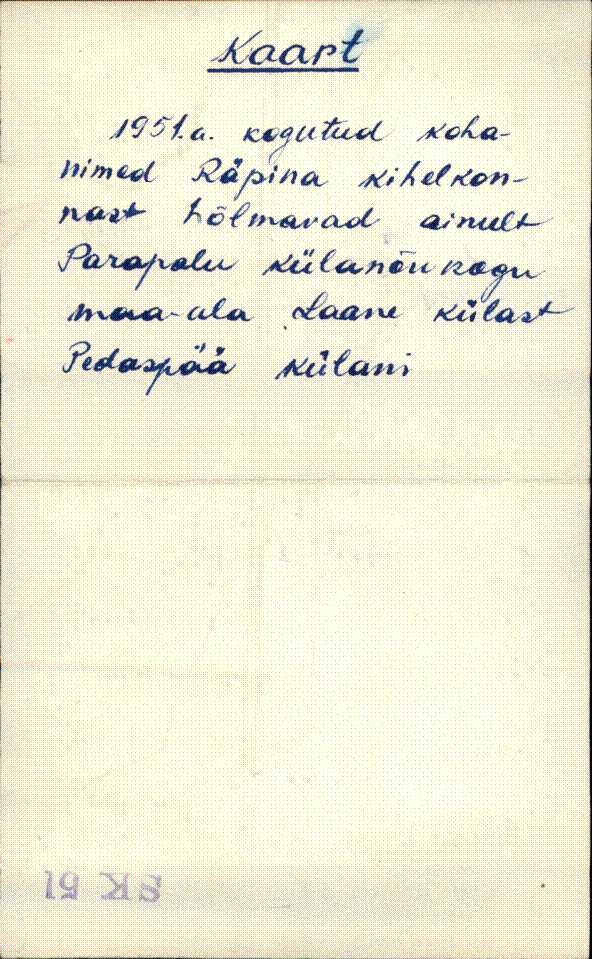 Kaart
1951.a. kogutud koha-
nimed Räpina kihelkon-
nast hõlmavad ainult
Parapalu külanõukogu
maa-ala Laane külast
Pedaspää külani
SK 51